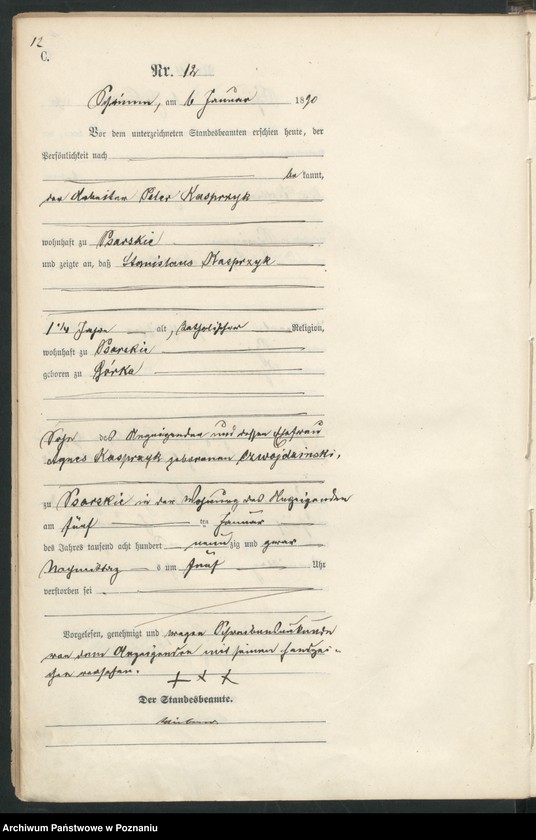 12
C.
Nr. 12
Schrimm, am 6 Januar 1890
Vor dem unterzeichneten Standesbeamten erschien heute, der
Persönlichkeit nach
be kannt,
der Arbeiter Peter Kasprzyk
wohnhaft zu Psarskie
und zeigte an, daß Stanislaus Kasprzyk
1 1/4 Jahre alt, katholischer Religion,
wohnhaft zu Psarskie
geboren zu Górka
Sohn des Anzeigenden und dessen Ehefrau
Agnes Kasprzyk geborenen
zu Psarskie in der Wohnung des Anzeigenden
am fünf ten Januar
des Jahres tausend acht hundert neun zig und zwar
Nachmittag s um fünf Uhr
verstorben sei
Vorgelesen, genehmigt und wegen Schreibensunkunde
von dem Anzeigenden mit seinen Handzei-
chen versehen.
+ x x
Der Standesbeamte.
Archiwum Państwowe w Poznaniu